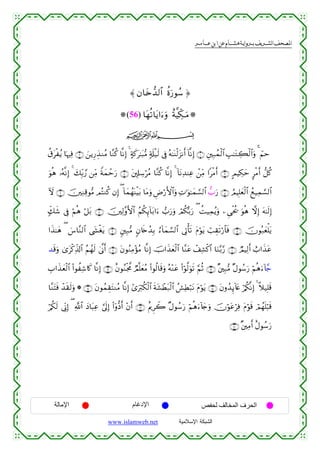 المصحف الشريف برواية هشام عن ابن عامر
﴿ سُورَةُ ٱلدُّخَانِ ﴾
*مَكِّيَّةٌ وَءَايَاتُهَا (56)*
حمٓ ۝ وَٱلْكِتَٰبِ ٱلْمُبِينِ ۝ إِنَّآ أَنزَلْنَٰهُ فِى لَيْلَةٍ مُّبَٰرَكَةٍ ۚ إِنَّا كُنَّا مُنذِرِينَ ۝ فِيهَا يُفْرَقُ
كُلُّ أَمْرٍ حَكِيمٍ ۝ أَمْرًا مِّنْ عِندِنَآ ۚ إِنَّا كُنَّا مُرْسِلِينَ ۝ رَحْمَةً مِّن رَّبِّكَ ۚ إِنَّهُۥ هُوَ
ٱلسَّمِيعُ ٱلْعَلِيمُ ۝ رَبُّ ٱلسَّمَٰوَٰتِ وَٱلْأَرْضِ وَمَا بَيْنَهُمَآ ۖ إِن كُنتُم مُّوقِنِينَ ۝ لَآ
إِلَٰهَ إِلَّا هُوَ يُحْىِۦ وَيُمِيتُ ۖ رَبُّكُمْ وَرَبُّ ءَابَآئِكُمُ ٱلْأَوَّلِينَ ۝ بَلْ هُمْ فِى شَكٍّ
يَلْعَبُونَ ۝ فَٱرْتَقِبْ يَوْمَ تَأْتِى ٱلسَّمَآءُ بِدُخَانٍ مُّبِينٍ ۝ يَغْشَى ٱلنَّاسَ ۖ هَٰذَا
عَذَابٌ أَلِيمٌ ۝ رَّبَّنَا ٱكْشِفْ عَنَّا ٱلْعَذَابَ إِنَّا مُؤْمِنُونَ ۝ أَنَّىٰ لَهُمُ ٱلذِّكْرَىٰ وَقَد
جَّآءَهُمْ رَسُولٌ مُّبِينٌ ۝ ثُمَّ تَوَلَّوْا۟ عَنْهُ وَقَالُوا۟ مُعَلَّمٌ مَّجْنُونٌ ۝ إِنَّا كَاشِفُوا۟ ٱلْعَذَابِ
قَلِيلًا ۚ إِنَّكُمْ عَآئِدُونَ ۝ يَوْمَ نَبْطِشُ ٱلْبَطْشَةَ ٱلْكُبْرَىٰٓ إِنَّا مُنتَقِمُونَ ۝ * وَلَقَدْ فَتَنَّا
قَبْلَهُمْ قَوْمَ فِرْعَوْنَ وَجَآءَهُمْ رَسُولٌ كَرِيمٌ ۝ أَنْ أَدُّوٓا۟ إِلَىَّ عِبَادَ ٱللَّهِ ۖ إِنِّى لَكُمْ
رَسُولٌ أَمِينٌ ۝
الحرف المخالف لحفص
الإدغام
الإمالة
الشبكة الإسلامية www.islamweb.net